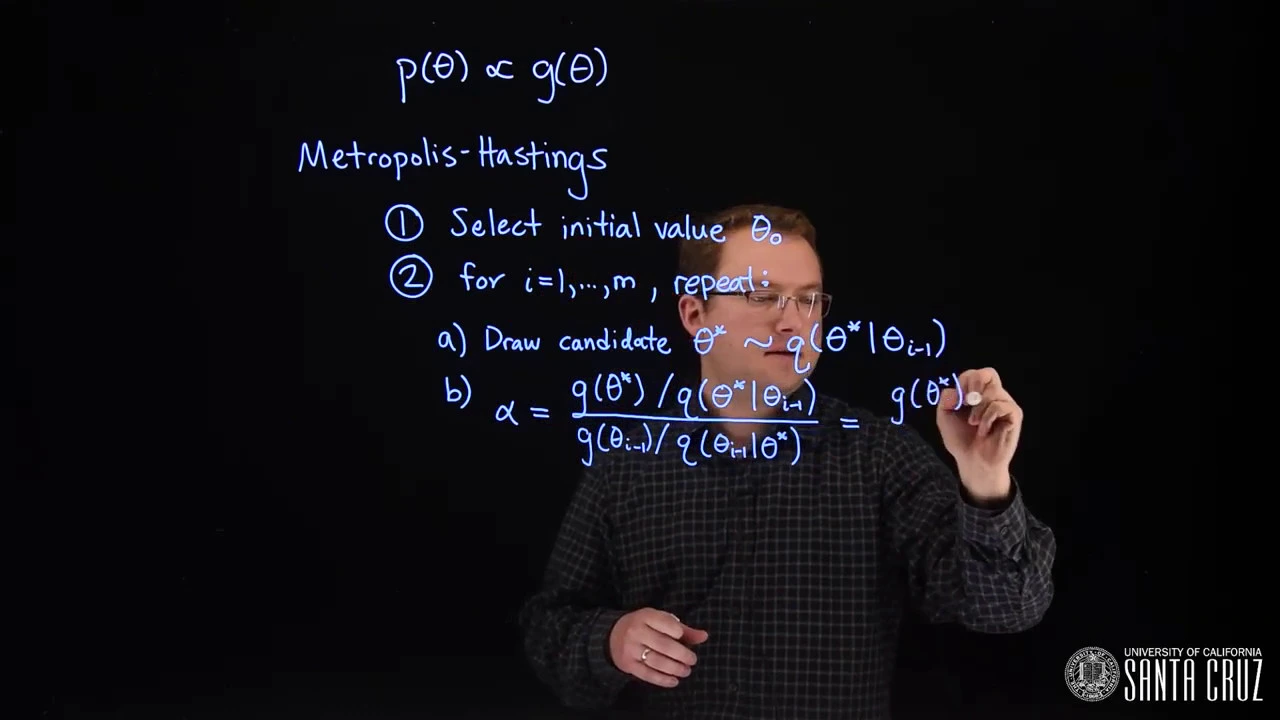 p(θ) ∝ g(θ)
Metropolis-Hastings
① Select initial value θ₀
② for i=1,...,m, repeat:
a) Draw candidate θ* ~ q(θ*|θᵢ₋₁)
b) α = g(θ*) / q(θ*|θᵢ₋₁) / g(θᵢ₋₁) / q(θᵢ₋₁|θ*) = g(θ*)
UNIVERSITY OF CALIFORNIA
SANTA CRUZ